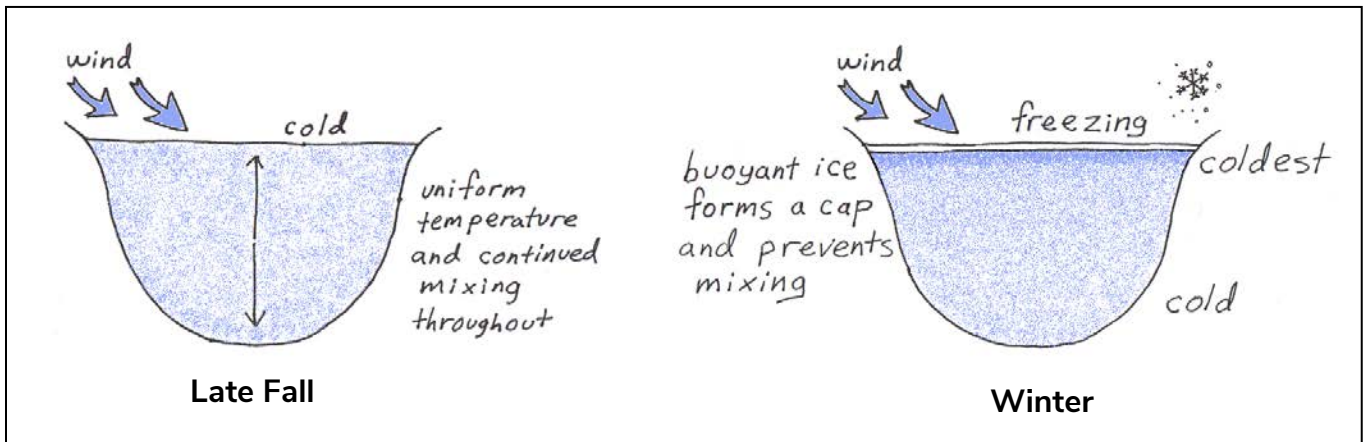 wind
cold
uniform
temperature
and continued
mixing
throughout
Late Fall
wind
freezing
coldest
buoyant ice
forms a cap
and prevents
mixing
cold
Winter